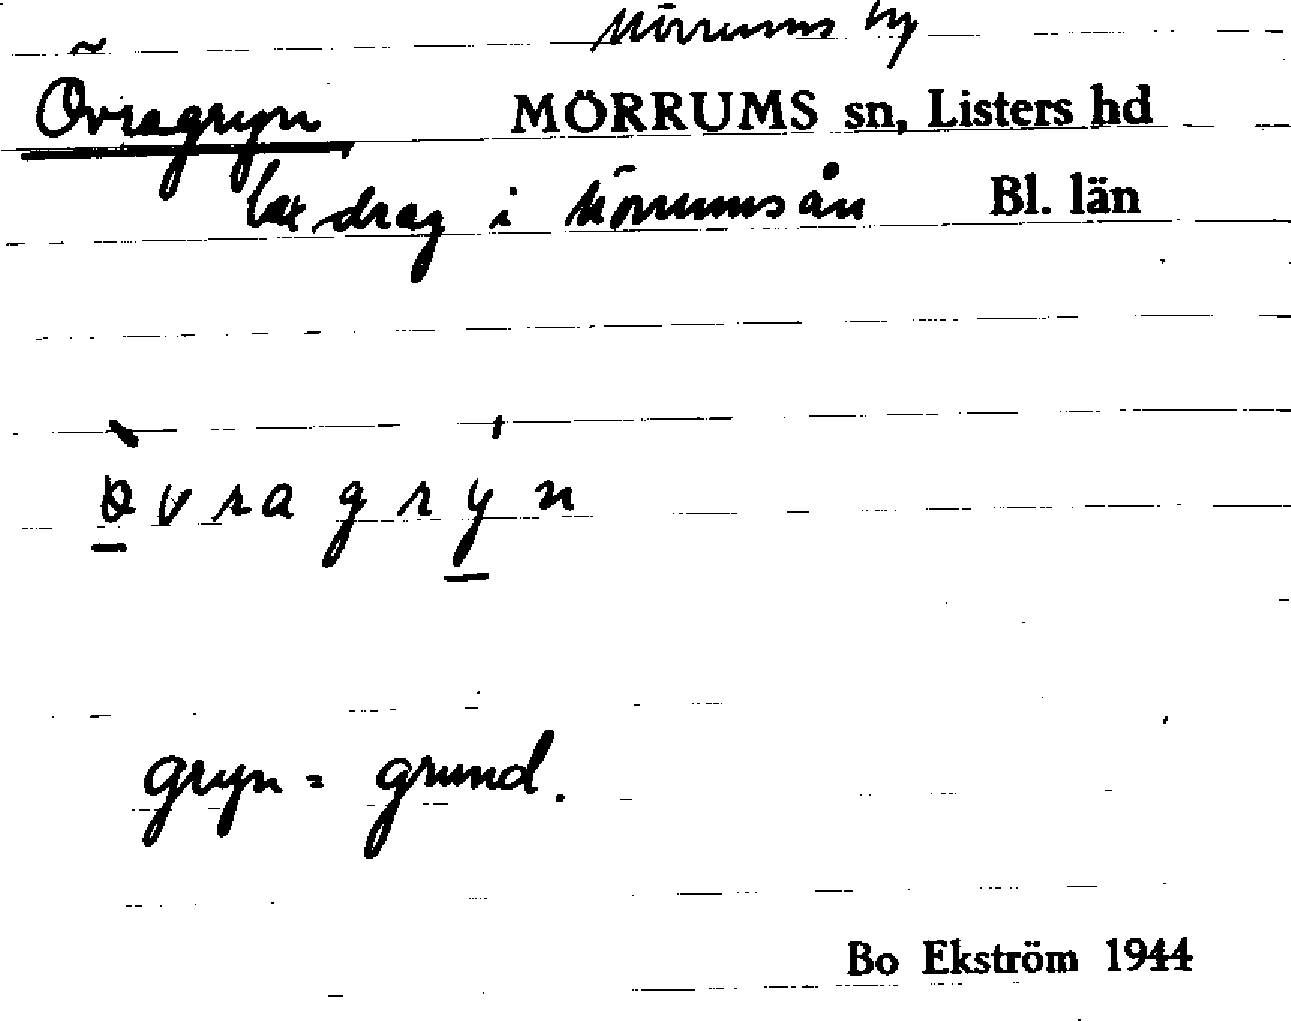 Mörrums by
Övragryn MÖRRUMS sn, Listers hd
laxdrag i Mörrumsån Bl. län
ö̀ v r a g r ý n
gryn = grund.
Bo Ekström 1944